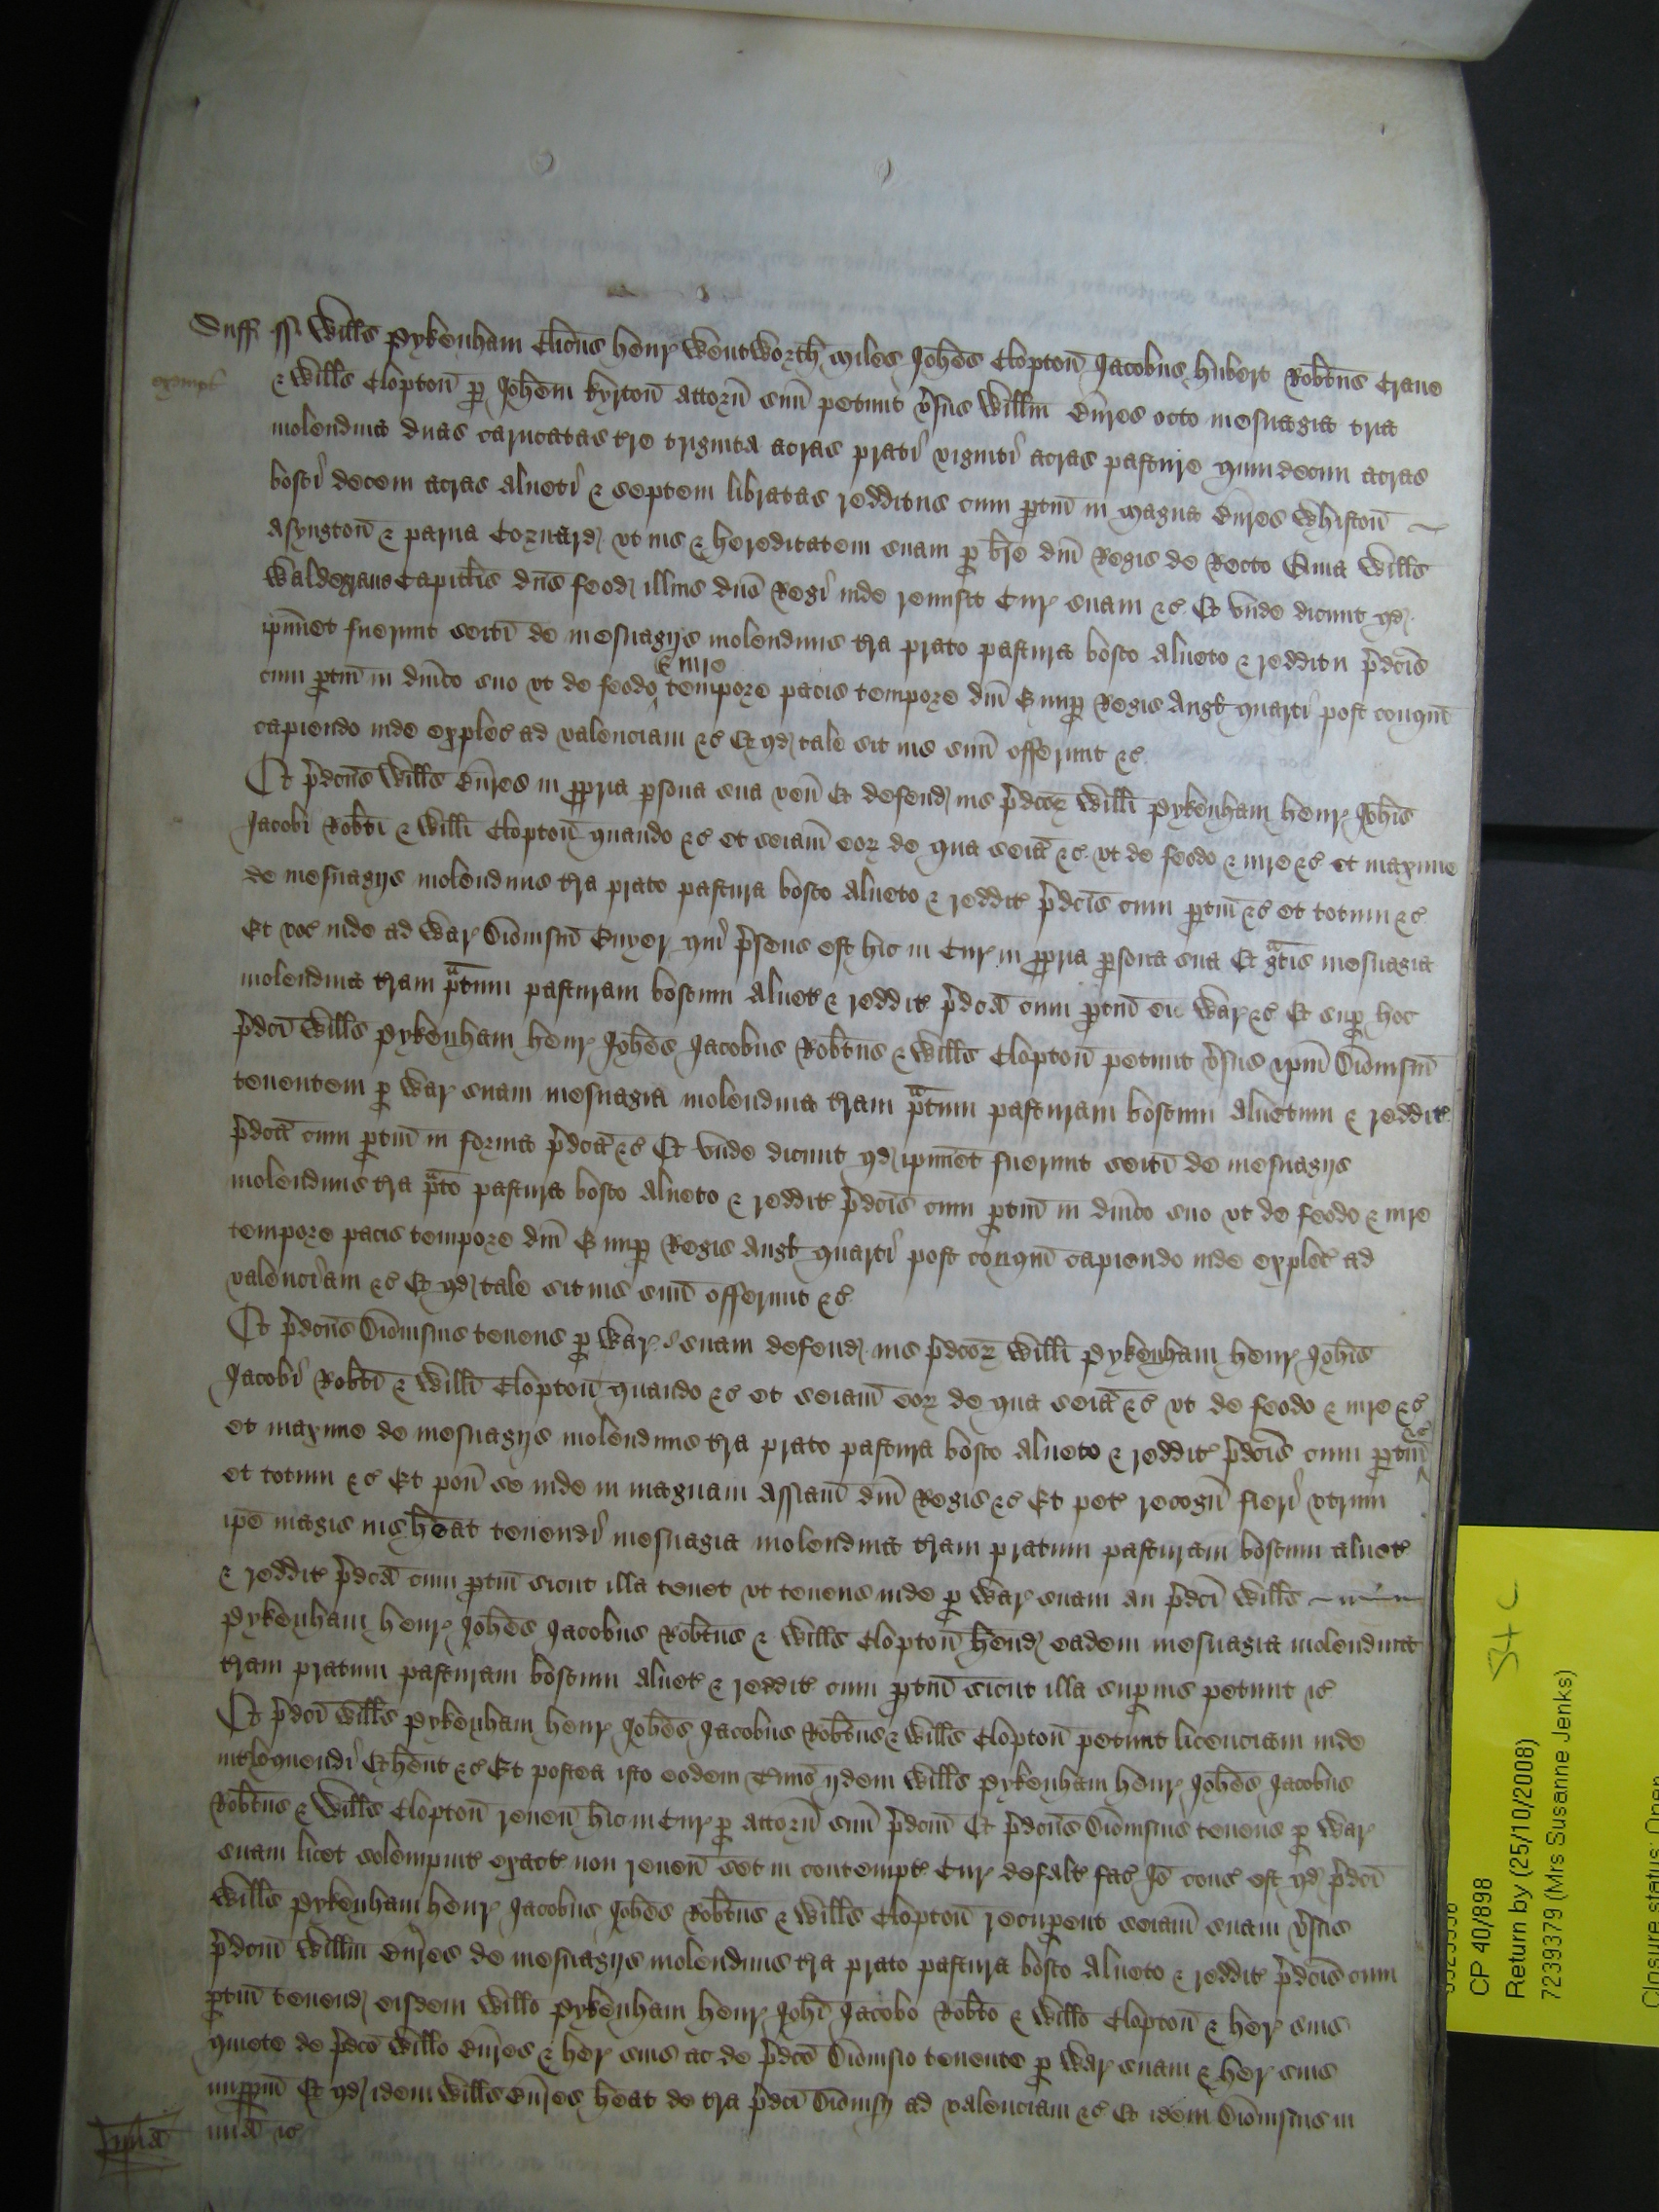 Suff ss Wills Pykenham Clicus Henr Wentworth Miles Johes Cloptoñ Jacobus Hubert Robtus Crane
exempt
& Wills Cloptoñ p Johem Kyrtoñ attorñ suũ petunt vsus Willm Bures octo mesuagia tria
molendina duas carucatas tre triginta acras prati viginti acras pasture quindecim acras
bosci decem acras alneti & septem libratas redditus cum ptiñ in Magna Bures Whistoñ
Asyngtoñ & parua Cornard ut ius & hereditatem suam p bre dñi Regis de Recto Quia Wills
Waldegraue Capitlis dñs feod illius dño Regi inde remisit Cur suam &c Et unde dicunt qd
ipimet fuerunt seiti de mesuagijs molendinis tra prato pastura bosco alneto & redditu pdcis
cum ptiñ in dñico suo ut de feodo & iure tempore pacis tempore dñi E nup Regis Angl quarti post conqm
capiendo inde explec ad valenciam &c Et qd tale sit ius suũ offerunt &c
Et pdcus Wills Bures in ppria psona sua veñ Et defend ius pdcor Willi Pykenham Henr Johis
Jacobi Robti & Willi Cloptoñ quando &c et seiam eor de qua seia &c ut de feodo & iure &c et maxime
de mesuagijs molendinis tra prato pastura bosco alneto & reddit pdcis cum ptiñ &c et totum &c
Et voc inde ad War Dionisiũ Euyer qui psens est hic in Cur in ppria psona sua Et gtis mesuagia
molendina tram ptum pasturam boscum alnet & reddit pdca cum ptiñ ei War &c Et sup hoc
pdci Wills Pykenham Henr Johes Jacobus Robtus & Wills Cloptoñ petunt vsus ipm Dionisiũ
tenentem p War suam mesuagia molendina tram ptum pasturam boscum alnetum & reddit
pdca cum ptiñ in forma pdca &c Et unde dicunt qd ipimet fuerunt seiti de mesuagijs
molendinis tra pto pastura bosco alneto & reddit pdcis cum ptiñ in dñico suo ut de feodo & iure
tempore pacis tempore dñi E nup Regis Angl quarti post conqm capiendo inde explec ad
valenciam &c Et qd tale sit ius suũ offerunt &c
Et pdcus Dionisius tenens p War suam defend ius pdcor Willi Pykenham Henr Johis
Jacobi Robti & Willi Cloptoñ quando &c et seiam eor de qua seia &c ut de feodo & iure &c
et maxime de mesuagijs molendinis tra prato pastura bosco alneto & reddit pdcis cum ptiñ &c
et totum &c Et poñ se inde in magnam assiam dñi Regis &c Et pet recogñ fieri utrum
ipe magis ius heat tenendi mesuagia molendina tram pratum pasturam boscum alnet
& reddit pdca cum ptiñ sicut illa tenet ut tenens inde p War suam an pdci Wills
Pykenham Henr Johes Jacobus Robtus & Wills Cloptoñ hend eadem mesuagia molendina
tram pratum pasturam boscum alnet & reddit cum ptiñ sicut illa supius petunt &c
Et pdci Wills Pykenham Henr Johes Jacobus Robtus & Wills Cloptoñ petunt licenciam inde
intloquendi Et hent &c Et postea isto eodem Tmio ijdem Wills Pykenham Henr Johes Jacobus
Robtus & Wills Cloptoñ reueñ hic in Cur p attorñ suũ pdcm Et pdcus Dionisius tenens p War
suam licet solempnit exact non reueñ set in contempt Cur defalt fac Io cons est qd pdci
Wills Pykenham Henr Jacobus Johes Robtus & Wills Cloptoñ recupent seiam suam vsus
pdcm Willm Bures de mesuagijs molendinis tra prato pastura bosco alneto & reddit pdcis cum
ptiñ tenend eisdem Willo Pykenham Henr Johi Jacobo Robto & Willo Cloptoñ & her suis
quiete de pdco Willo Bures & her suis ac de pdco Dionisio tenente p War suam & her suis
imppm Et qd idem Wills Bures heat de tra pdci Dionisij ad valenciam &c Et idem Dionisius in
mia &c
mia
CP 40/898
Return by (25/10/2008)
7239379 (Mrs Susanne Jenks)
Closure status: Open